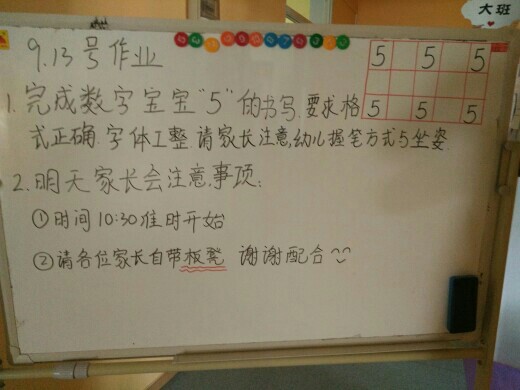 大班
9.13号作业
5 5 5
1.完成数字宝宝"5"的书写.要求格
5 5 5
式正确.字体工整.请家长注意,幼儿握笔方式与坐姿
2.明天家长会注意事项:
①时间10:30准时开始
②请各位家长自带板凳 谢谢配合